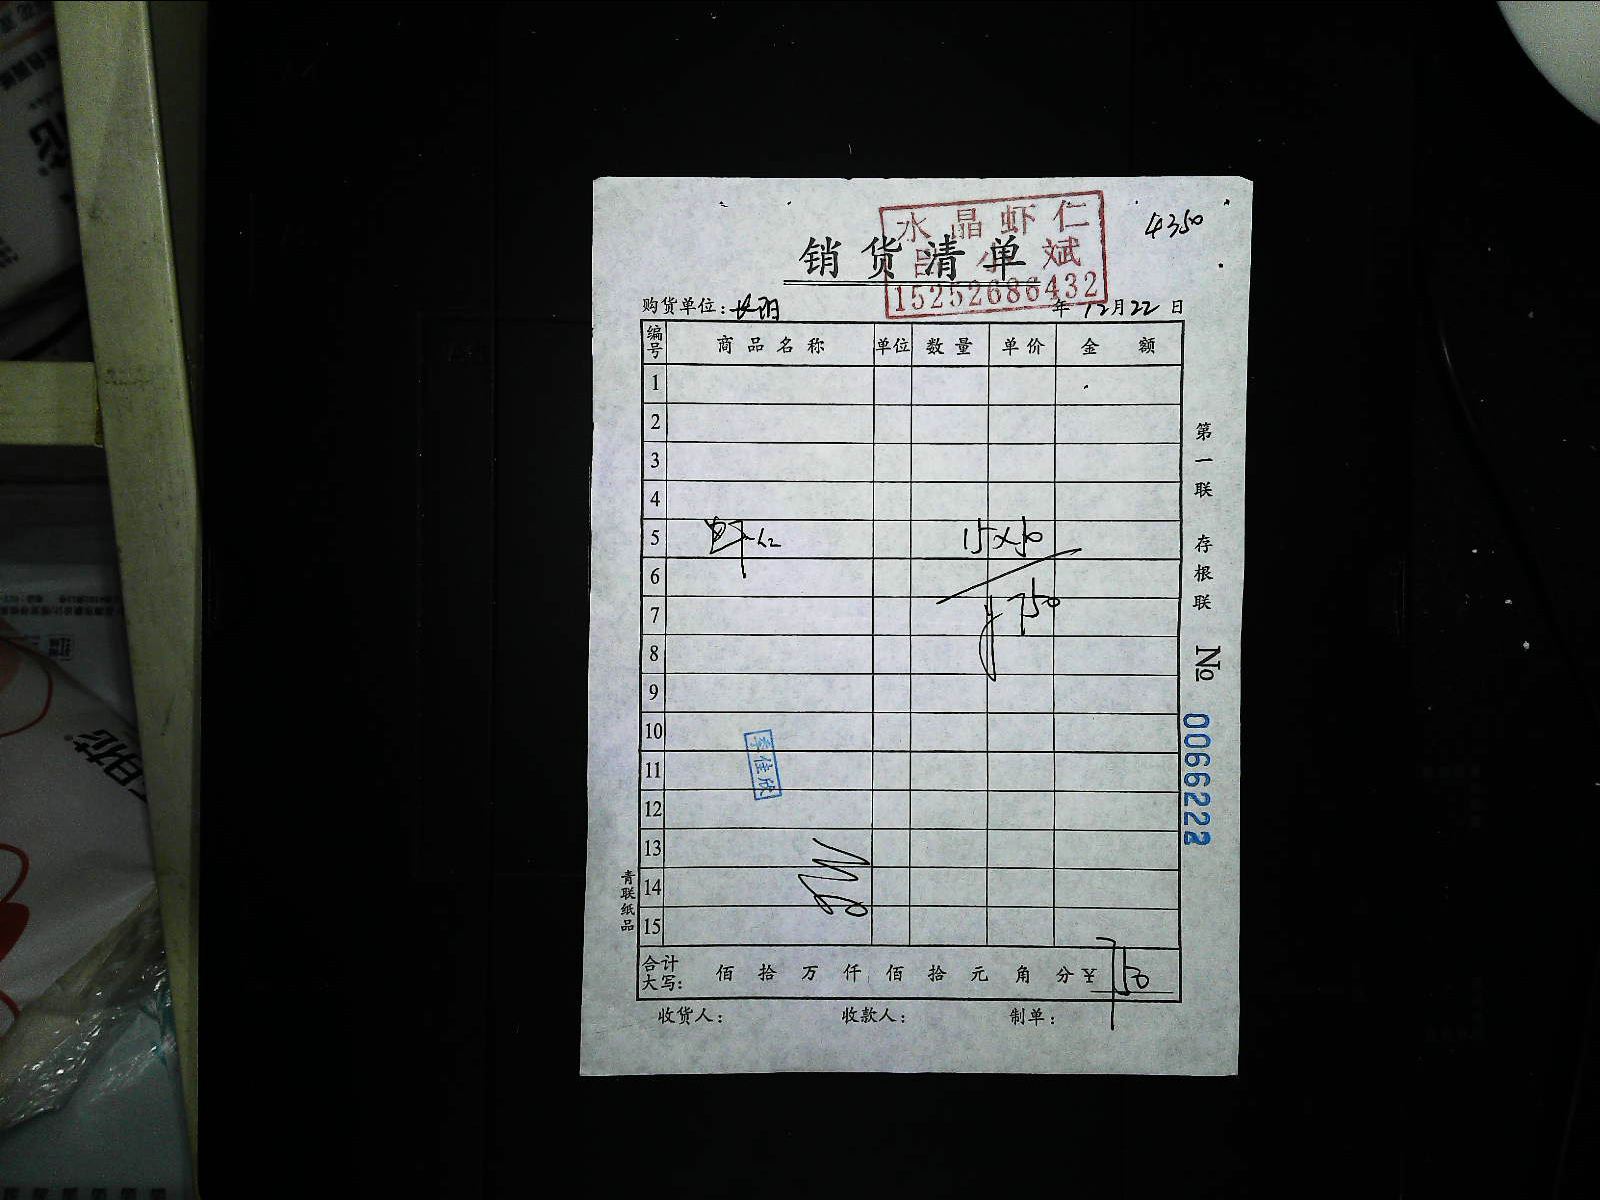 4350
水晶虾仁
吕小斌
15252686432
销货清单
购货单位: 年12月22日
编号 商品名称 单位 数量 单价 金额
1
2
3
4
5 虾仁 15×50
6
7 ¥750
8
9
10
11
12
13
14
15
季佳欣
合计大写: 佰 拾 万 仟 佰 拾 元 角 分 ¥750
收货人: 收款人: 制单:
第一联 存根联
No 0066222
青联纸品